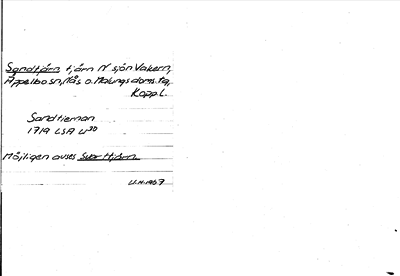 Sandtjärn, tjärn N sjön Vakern,
Äppelbo sn, Nås o. Malungs doms. tg,
Kopp l.
Sandtiernan
1719 LSA U30
Möjligen avses Svarttjärn.
U.H. 1967